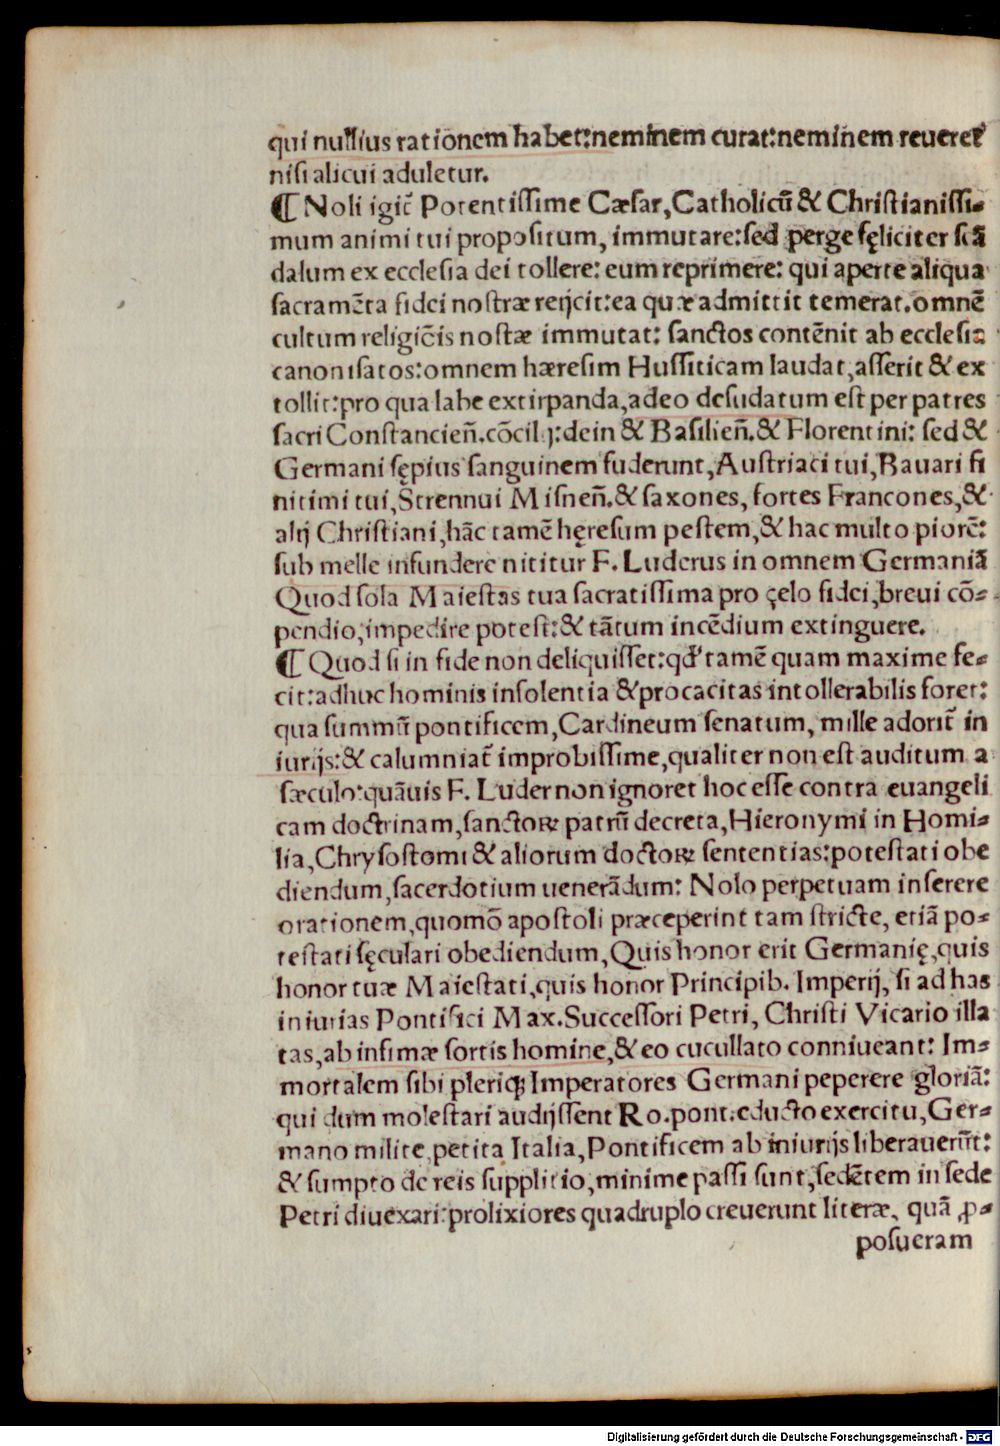 qui nullius rationem habet:neminem curat:neminem reueret᷑
nisi alicui aduletur.
¶ Noli igit᷑ Potentissime Cæsar, Catholicū & Christianissi-
mum animi tui propositum, immutare:sed perge fęliciter scā
dalum ex ecclesia dei tollere: eum reprimere: qui aperte aliqua
sacramēta fidei nostræ reijcit:ea quæ admittit temerat.omnē
cultum religiōis nostæ immutat: sanctos contēnit ab ecclesia
canonisatos:omnem hæresim Hussiticam laudat,asserit & ex
tollit:pro qua labe extirpanda,adeo desudatum est per patres
sacri Constancień.cōcilij:dein & Basilień.& Florentini: sed &
Germani sępius sanguinem fuderunt,Austriaci tui,Bauari fi
nitimi tui,Strennui Misneń.& saxones, fortes Francones,&
alij Christiani,hāc tamē hęresum pestem,& hac multo piorē:
sub melle infundere nititur F. Luderus in omnem Germaniā
Quod sola Maiestas tua sacratissima pro çelo fidei,breui cō-
pendio,impedire potest:& tātum incēdium extinguere.
¶ Quod si in fide non deliquisset:qd' tamē quam maxime fe-
cit:adhuc hominis insolentia & procacitas intollerabilis foret:
qua summū pontificem, Cardineum senatum, mille adorit᷑ in
iurijs:& calumniat᷑ improbissime,qualiter non est auditum a
sæculo:quāuis F. Luder non ignoret hoc esse contra euangeli
cam doctrinam,sanctoꝝ patrū decreta,Hieronymi in Homi-
lia,Chrysostomi & aliorum doctoꝝ sententias:potestati obe
diendum,sacerdotium uenerādum: Nolo perpetuam inserere
orationem,quomō apostoli præceperint tam stricte, etiā po-
testati sęculari obediendum,Quis honor erit Germanię,quis
honor tuæ Maiestati,quis honor Principib. Imperij, si ad has
iniurias Pontifici Max.Successori Petri, Christi Vicario illa
tas,ab infimæ sortis homine,& eo cucullato conniueant: Im-
mortalem sibi pleriqꝫ Imperatores Germani peperere gloriā:
qui dum molestari audijssent Ro.pont.educto exercitu,Ger-
mano milite,petita Italia,Pontificem ab iniurijs liberauerūt:
& sumpto de reis supplitio,minime passi sunt,sedētem in sede
Petri diuexari:prolixiores quadruplo creuerunt literæ, quā ꝓ-
posueram
Digitalisierung gefördert durch die Deutsche Forschungsgemeinschaft - DFG